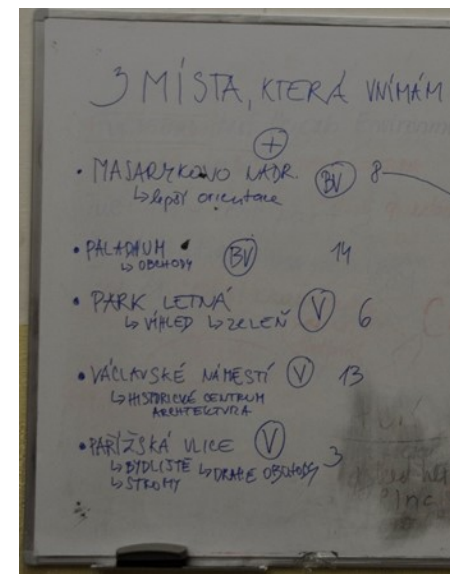 3 MÍSTA, KTERÁ VNÍMÁM
+
• MASARYKOVO NÁDR. BV 8
↳ lepší orientace
• PALADIUM BV 14
↳ OBCHODY
• PARK LETNÁ V 6
↳ VÝHLED ↳ ZELEŇ
• VÁCLAVSKÉ NÁMESTÍ V 13
↳ HISTORICKÉ CENTRUM
ARCHITEKTURA
• PAŘÍŽSKÁ ULICE V 3
↳ BYDLIŠTĚ ↳ DRAHÉ OBCHODY
↳ STROMY